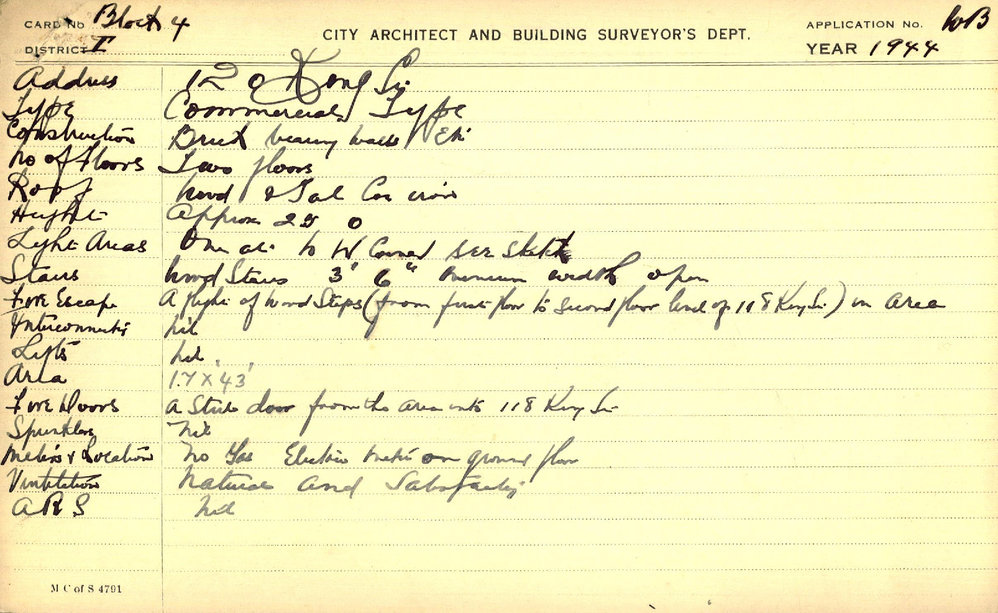 CARD No Block 4
CITY ARCHITECT AND BUILDING SURVEYOR'S DEPT.
APPLICATION No. WB
DISTRICT I
YEAR 1944
Address 120 King St
Type Commercial Type
Construction Brick bearing walls Etc
No of Floors Two floors
Roof Wood & Gal Cor iron
Height Approx 25 0
Light Areas One at N W Corner see sketch
Stairs Wood Stairs 3' 6" width open
Fire Escape A flight of Wood Steps (from first floor to second floor level of 118 King St) in area
Interconnectn nil
Lifts nil
Area 17' x 43'
Fire Doors a Steel door from the area into 118 King St
Sprinklers Nil
Meters & Location No Gas Electric meter on ground floor
Ventilation Natural and Satisfactory
A R S Nil
M C of S 4791